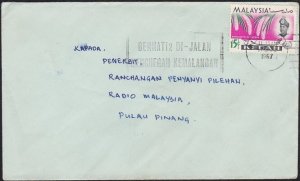 MALAYSIA
15¢
KEDAH
1967
BERHATI2 DI-JALAN
CHEGAH KEMALANGAN
KAPADA.
PENERBIT.
RANCHANGAN PENYANYI PILEHAN,
RADIO MALAYSIA,
PULAU PINANG.